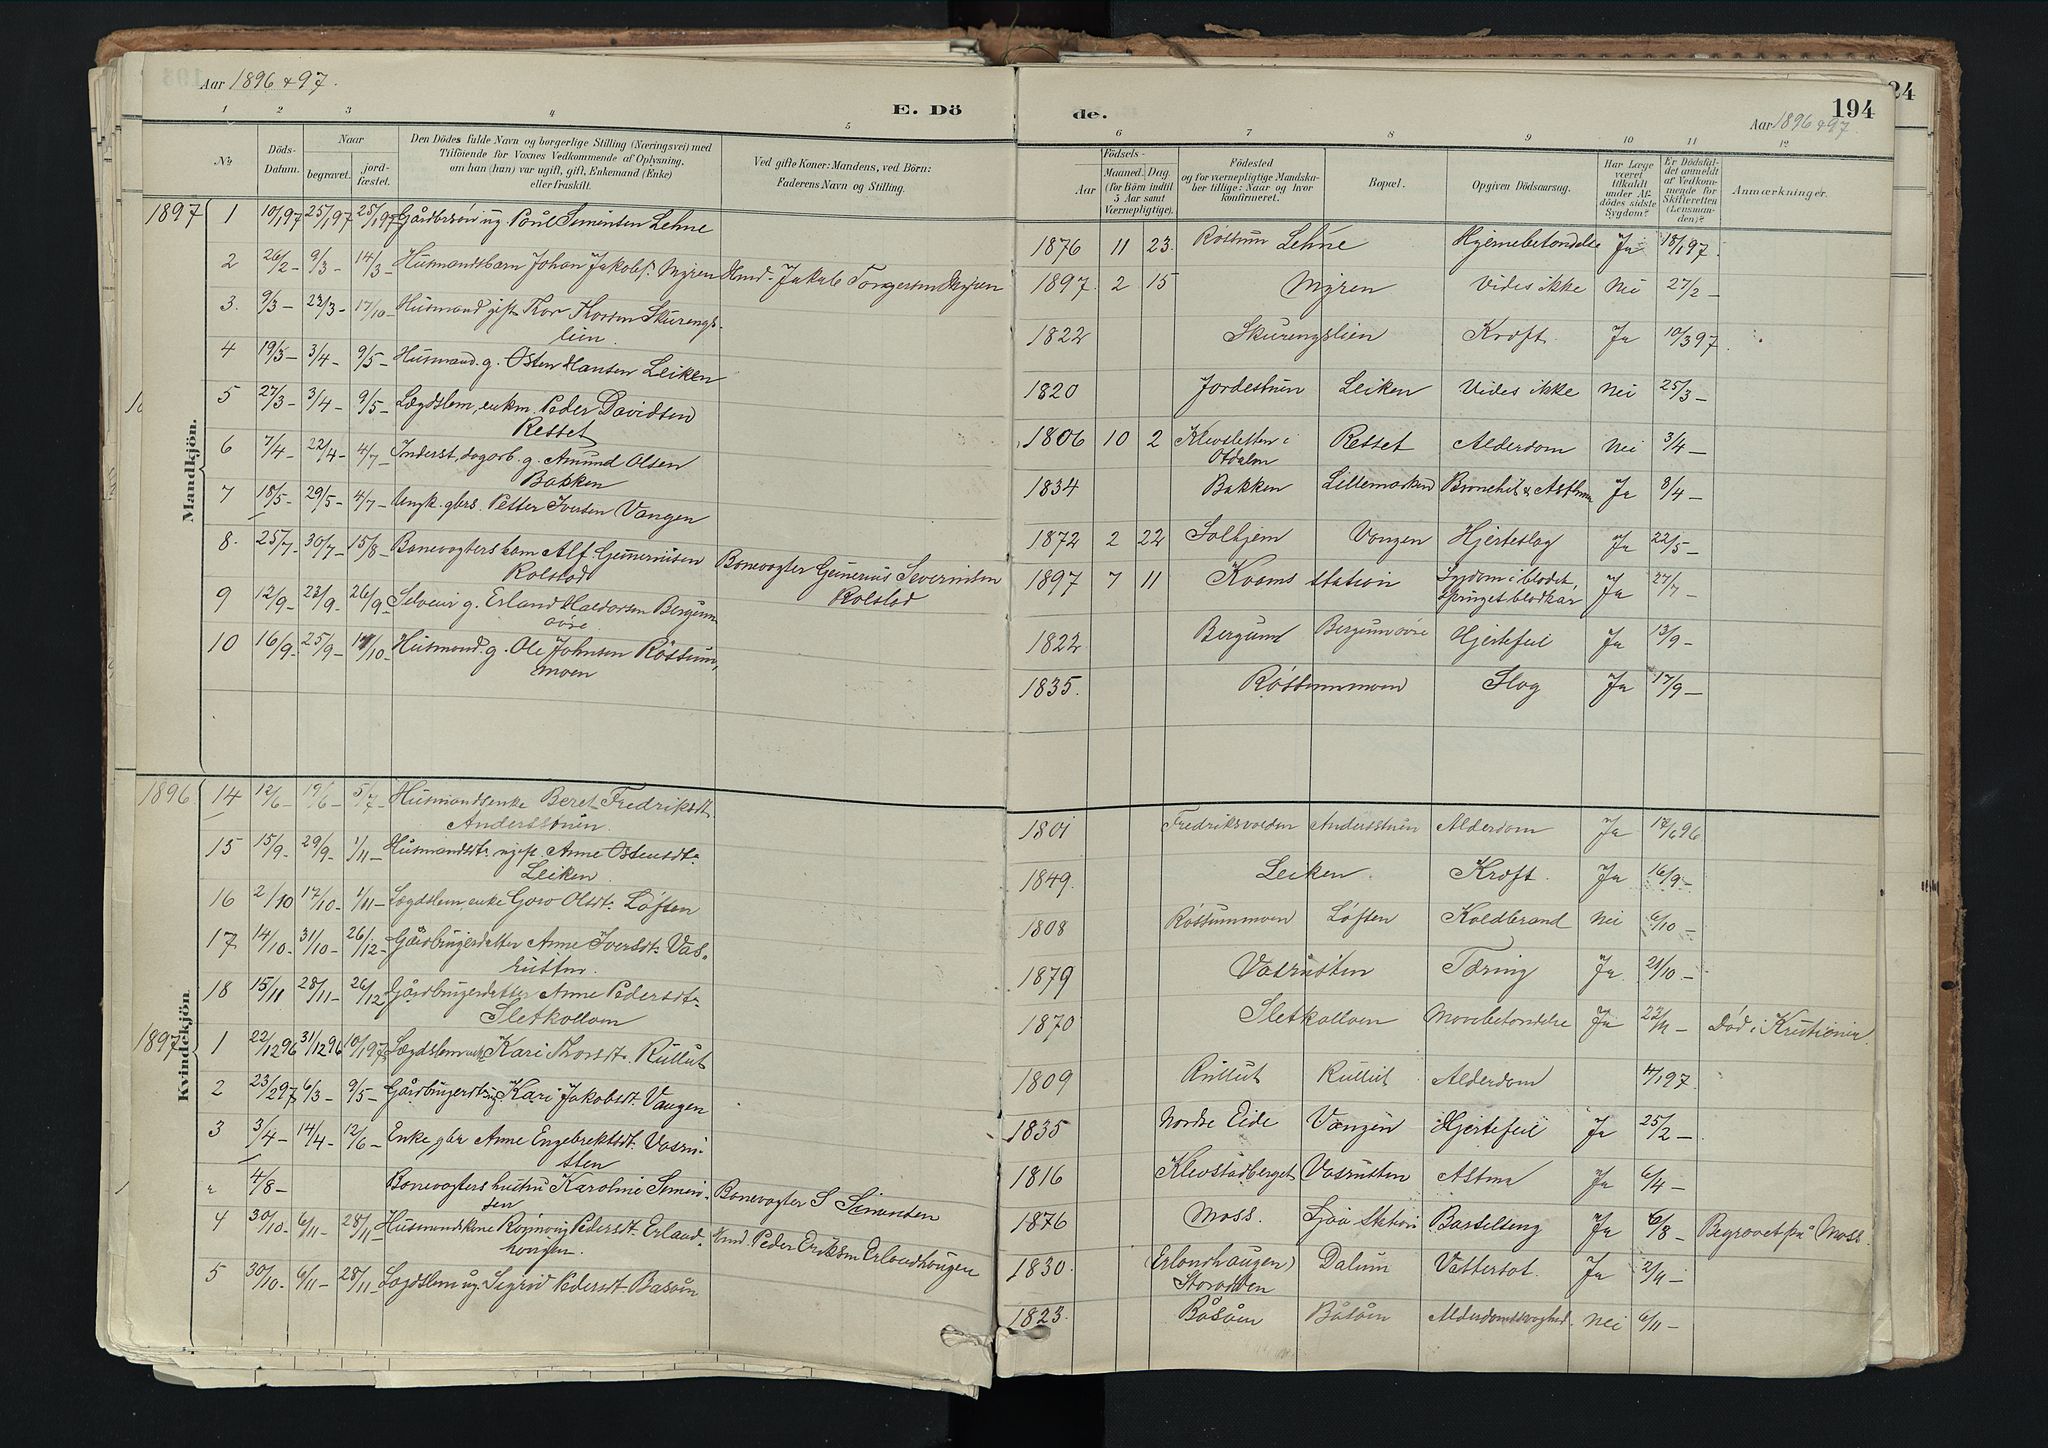 Aar 1896 & 97.
E. Dö
de.
194
Aar 1896 & 97.
24
1 2 3 4 5 6 7 8 9 10 11 12
No
Döds-
Datum.
Naar
begravet.
jord-
fæstet.
Den Dödes fulde Navn og borgerlige Stilling (Næringsvei) med
Tilföiende for Voxnes Vedkommende af Oplysning,
om han (hun) var ugift, gift, Enkemand (Enke)
eller fraskilt.
Ved gifte Koner: Mandens, ved Börn:
Faderens Navn og Stilling.
Födsels-
Aar
Maaned. Dag.
(for Börn indtil
5 Aar samt
Værnepligtige).
Födested
og for værnepligtige Mandska-
ber tillige: Naar og hvor
konfirmeret.
Bopæl.
Opgiven Dödsaarsag.
Har Læge
været
tilkaldt
under Af-
dödes sidste
Sygdom?
Er Dödsfal-
det anmeldt
af Vedkom-
mende for
Skifteretten
(Lensman-
den)?
Anmærkninger.
Mandkjön.
1897 1 10/1 97 25/1 97 25/1 97 Gårdbrsøn ug. Poul Simensen Lehne 1876 11 23 Røssum Lehne Hjernebetændelse Ja 18/1 97.
2 26/2 - 9/3 - 14/3 - Husmandsbarn Johan Jakobs. Myren Hmd. Jakob Torgersen Myren 1897 2 15 Myren Vides ikke Nei 27/2 -
3. 9/3 - 23/3 - 17/10 - Husmand gift Thor Thorsen Skurengs-
lien 1822 Skurengslien Kræft. Ja 10/3 97.
4 19/3 - 3/4 - 9/5 - Husmand. g. Osten Hansen Leiken 1820 Jordestuen Leiken Vides ikke Nei 25/3 -
5 27/3 - 3/4 - 9/5 - Lægdslem, enkm. Peder Davidsen
Resset 1806 10 2 Klevsletten i
Otdalen Resset Alderdom Nei 3/4 -
6 7/4 - 22/4 - 4/7 - Inderst, dagarb. g. Amund Olsen
Bakken 1834 Bakken Lillemarken Bronchit & Asthma Ja 8/4 -
7 18/5 - 29/5 - 4/7 - Ungk. gbrs. Petter Iversen Vangen 1872 2 22 Solhjem Vangen Hjerteslag Ja 22/5 -
8. 25/7 - 30/7 - 15/8 - Banevogters barn Alf Gunerinsen
Rolstad Banevogter Gunerius Severinsen
Rolstad 1897 7 11 Kvams station Sygdom i blodet,
sprunget blodkar Ja 27/7 -
9 12/9 - 23/9 - 26/9 - Selveier g. Erland Haldorsen Bergum
øvre 1822 Bergum Bergum øvre Hjertefeil Ja 13/9 -
10 16/9 - 25/9 - 17/10 - Husmand. g. Ole Johnsen Røssum-
moen 1835. Røssummoen Slag Ja 17/9 -
Kvindekjön.
1896. 14 12/6 - 19/6 - 5/7 - Husmandsenke Beret Fredriksdt.
Andersstuen. 1801 Fredriksvolden Andersstuen Alderdom Ja 17/6 96
15 15/9 - 29/9 - 1/11 - Husmandsdt. ugift. Anne Ostensdt.
Leiken. 1849. Leiken. Kræft. Ja 16/9 -
16 2/10 17/10 - 1/11 - Lægdslem, enke Goro Olsdt. Løften 1808 Røssummoen Løften Koldbrand Nei 6/10 -
17 14/10 - 31/10 - 26/12 - Gårdbrugerdatter Anne Iversdt. Vas-
rusten. 1879 Vasrusten Tæring Ja 21/10 -
18 15/11 28/11 - 26/12 Gårdbrugerdatter Anne Pedersdt.
Sletkolloen 1870 Sletkolloen Mavebetændelse Ja 22/11 - Død i Kristiania.
1897 1 22/12 96 31/12 96 10/1 97 Lægdslem enke Kari Thorsdt. Rullut 1809 Rullut Rullut Alderdom 4/1 97.
2 23/2 97 6/3 - 9/5 - Gårdbrugerdt. ug. Kari Jakobsdt. Vangen 1835 Nordre Eide Vangen Hjertefeil Ja 25/2 -
3 3/4 - 14/4 - 12/6 - Enke, gbr Anne Engebrektsdt. Vasru-
sten 1816 Klevstadberget Vasrusten Astma Ja 6/4 -
a 4/8 - Banevogters hustru Karoline Simen-
sen Banevogter S Simensen 1876 Moss. Sjoa Station Barselseng Ja 6/8 - Begravet på Moss.
4 30/10. 6/11 - 28/11 Husmandskone Rønnoug Pedersdt. Erland-
hougen. Hmd. Peder Eriksen Erlandhougen 1830. (Erlandhaugen)
Storødden Dalum Vattersot. Ja 2/11 -
5 30/10. 6/11 - 28/11 Lægdslem ug. Sigrid Pedersdt. Båsåen 1823. Båsåen Båsåen Alderdomssvaghed. Nei 6/11 -